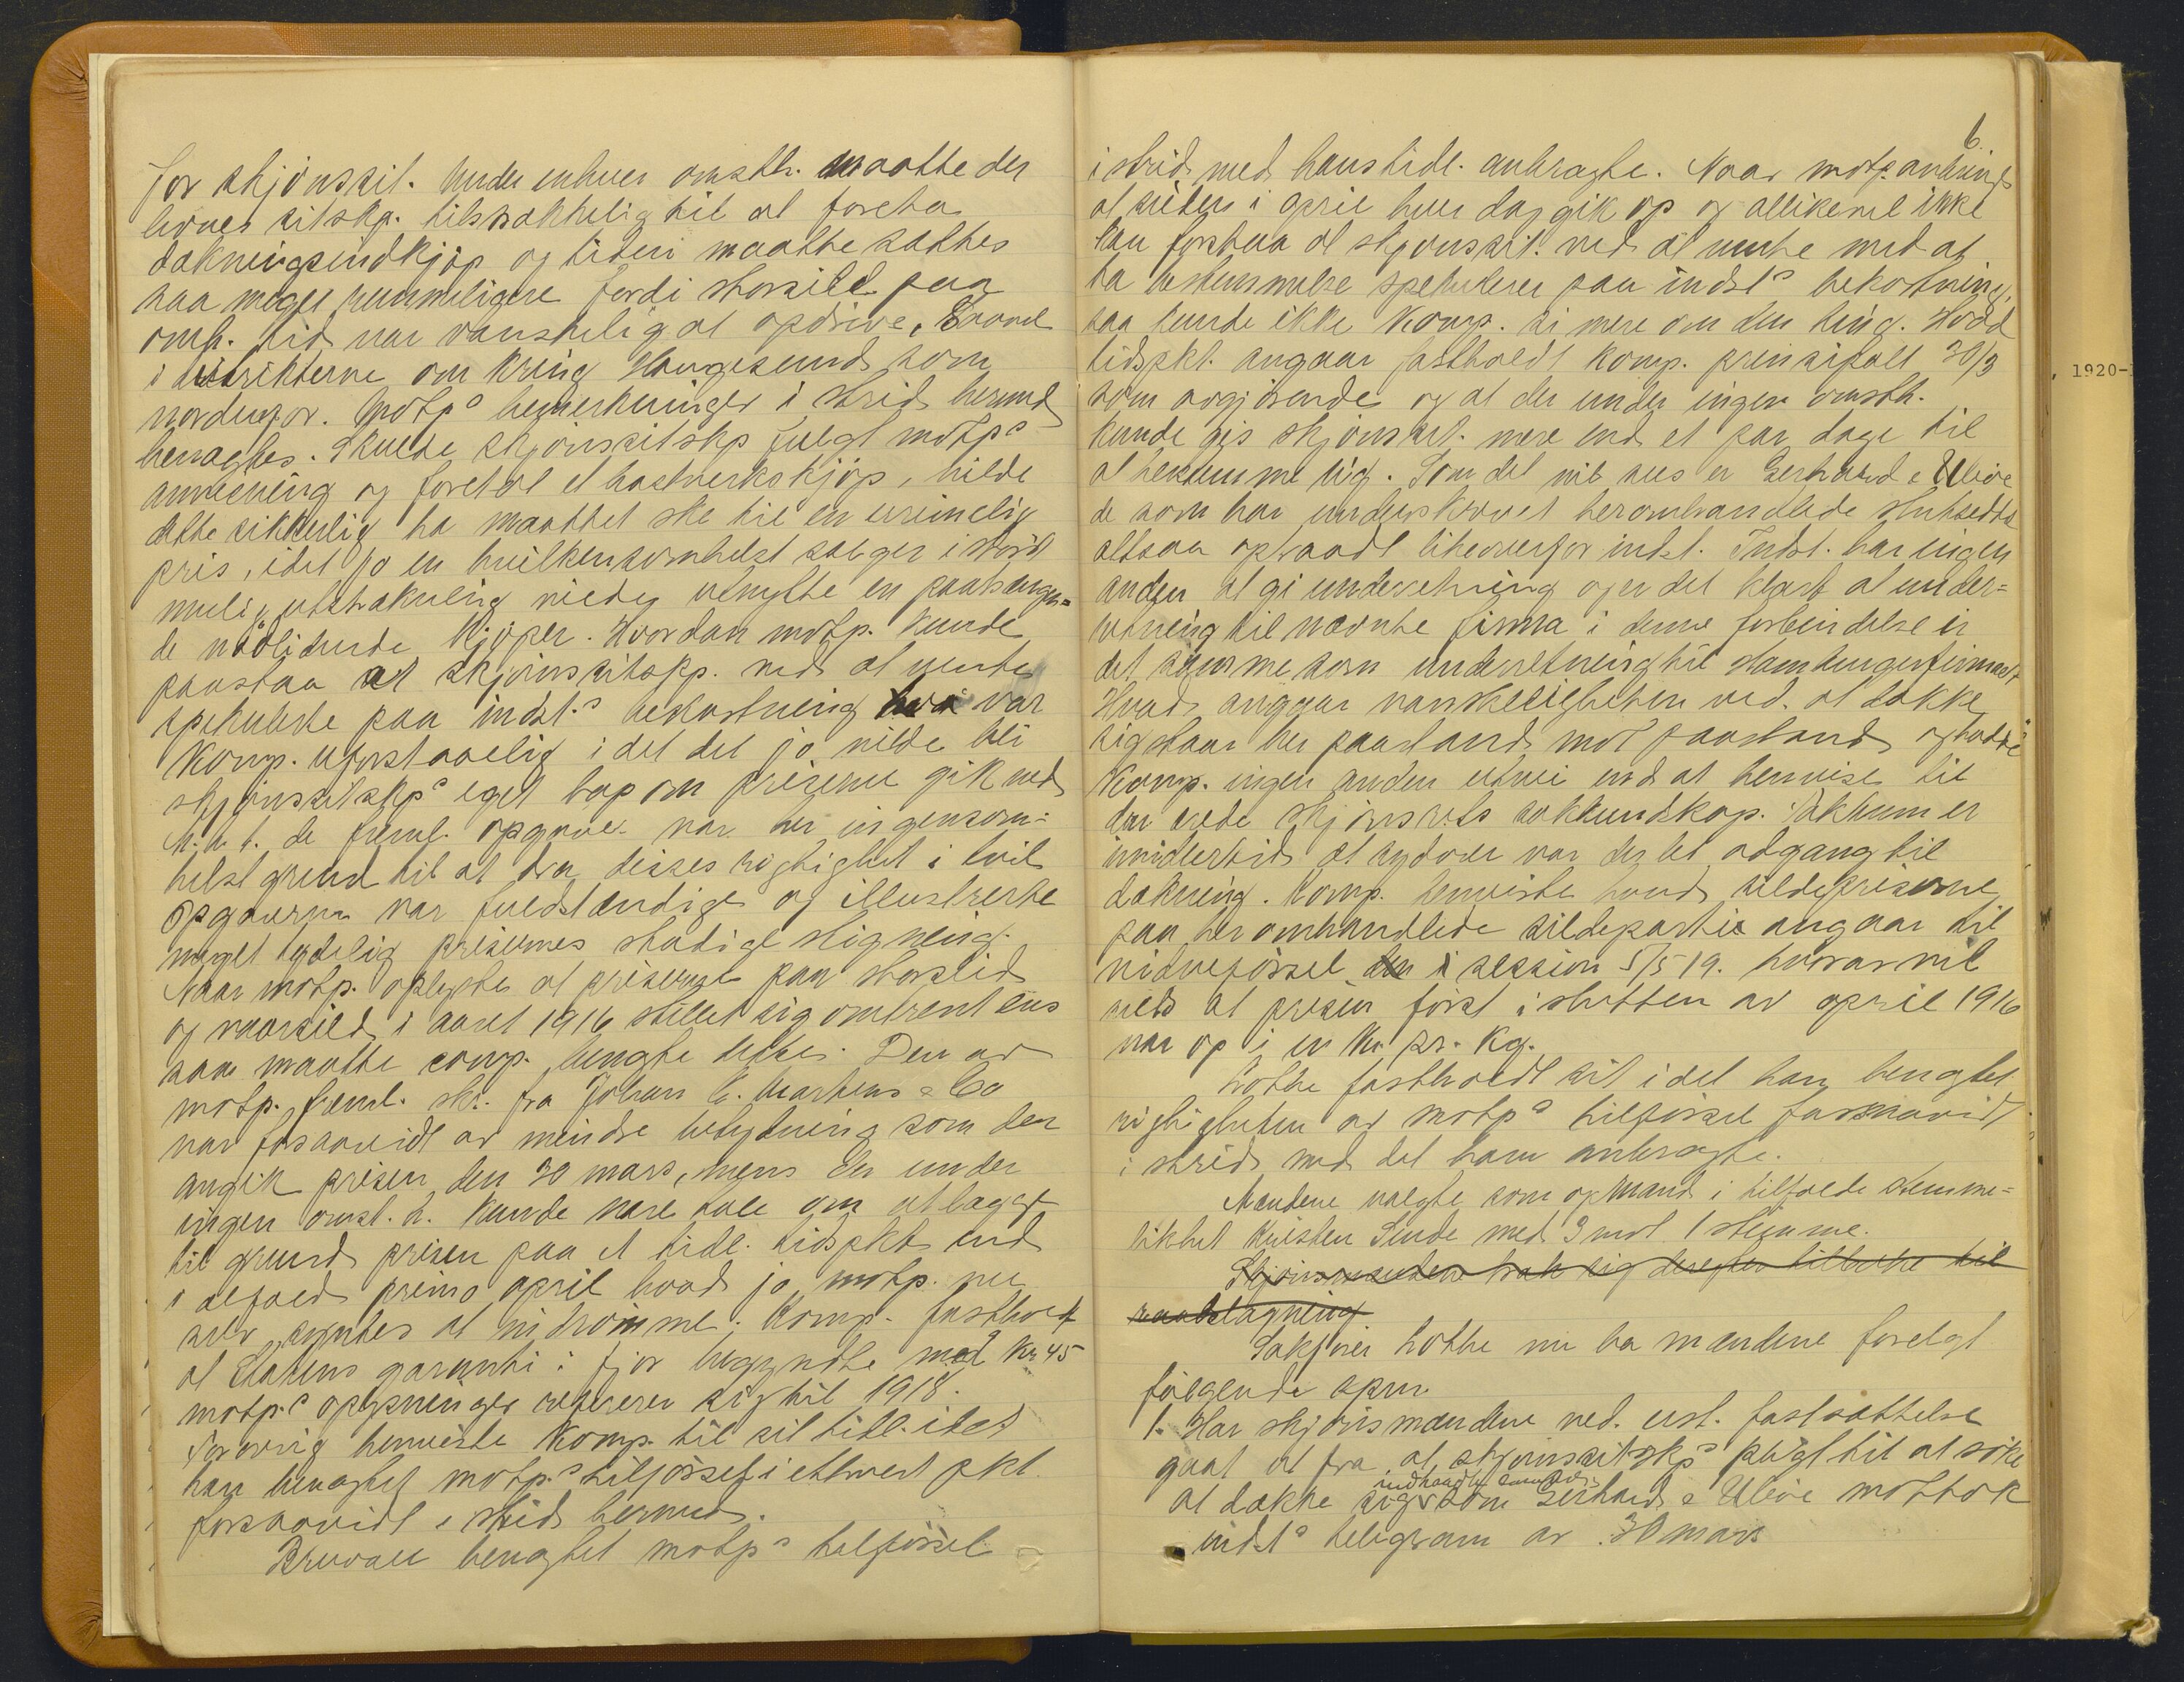 for skjønssit. Under enhver omsth. maatte der
levnes sitskp. tilstrækkelig tid at foreta
dækningsindkjøp og tiden maatte sættes
saa meget rummeligere fordi storsild paa
omh. tid var vanskelig at opdrive, saavel
i distrikterne om kring Haugesund som
nordenfor. Motp.s bemerkninger i strid hermed
benægtes. Skulde skjønssitskp fulgt motp.s
anvisning og foretat et hastverkskjøp, vilde
dette sikkerlig ha maattet ske til en urimelig
pris, idet jo en hvilkensomhelst sælger i størst
mulig utstrækning vil utnytte en paatrængen=
de nødlidende kjøper. Hvordan motp. kunde
paastaa at skjønssitskp. ved at vente
spekulerte paa indst.s bekostning var
Komp. uforstaaelig idet det jo vilde bli
skjønssitskps eget tap om priserne gik ned
M.h.t. de freml. opgaver var her ingensom=
helst grund til at dra disses rigtighet i tvil
Opgaverne var fuldstændige og illustrerte
meget tydelig prisernes stadige stigning.
Naar motp. oplyste at priserne paa storsild
og vaarsild i aaret 1916 stillet sig omtrent ens
saa maatte comp. benægte dette. Den av
motp. freml. skr. fra Johan E. Martens & Co
var forsaavidt av mindre betydning som den
angik prisen den 30 mars, mens der under
ingen omst.h. kunde være tale om at lægge
til grund prisen paa et tidl. tidspkt end
i alfald primo april hvad jo motp. nu
selv syntes at indrømme. Komp. fastholdt
at Statens garanti i fjor begyndte med kr 45
motp.s oplysninger refererer sig til 1918.
Forøvrig henviste Komp. til sit tidl. idet
han benægtet motp.s tilførsel i ethvert pkt.
forsaavidt i strid hermed.
Bruvall benægtet motp.s tilførsel
6.
i strid med hans tidl. anbragte. Naar motp. anbringer
at silden i april hver dag gik op og allikevel ikke
kan forstaa at skjønssit. ved at vente med at
ta bestemmelse spekulerer paa indst.s bekostning,
saa kunde ikke Komp. si mere om den ting. Hvad
tidspkt. angaar fastholdt Komp. prinsipalt 30/3
som avgjørende og at der under ingen omsth.
kunde gis skjønssit. mere end et par dage til
at bestemme sig. Som det vil sees er Gerhard & Uleve
de som har underskrevet heromhandlede slutseddel
altsaa optraadt likeoverfor indst. Indst. har ingen
anden at gi underretning og er det klart at under=
retning til nævnte firma i denne forbindelse er
det samme som underretning til Hamburgerfirmaet.
Hvad angaar vanskeligheten ved. at dække
sig staar her paastand mot paastand og hadde
Komp. ingen anden utvei end at henvise til
den ærede skjønsrets sakkundskap. Faktum er
imidlertid at sydover var der let adgang til
dækning. Komp. henviste hvad sildepriserne
paa her omhandlede sildepartie angaar til
vidneførsel i session 5/5 19. hvorav vil
sees at prisen først i slutten av april 1916
var op i en kr. pr. kg.
Lothe fastholdt sit idet han benægtet
rigtigheten av motp.s tilførsel forsaavidt
i strid med det ham anbragte.
Mændene valgte som opmand i tilfælde stemme=
likhet Kristen Sunde med 3 mot 1 stemme.
Skjønsmændene trak sig derefter tilbake til
raadslagning
Sakfører Lothe vil ha mændene forelagt
følgende spm.
1. Har skjønsmændene ved. erst. fastsættelse
gaat ut fra at skjønssitskps pligt til at søke
at dække sig som Gerhard & Uleve mottok
indst.s telegram av 30 mars